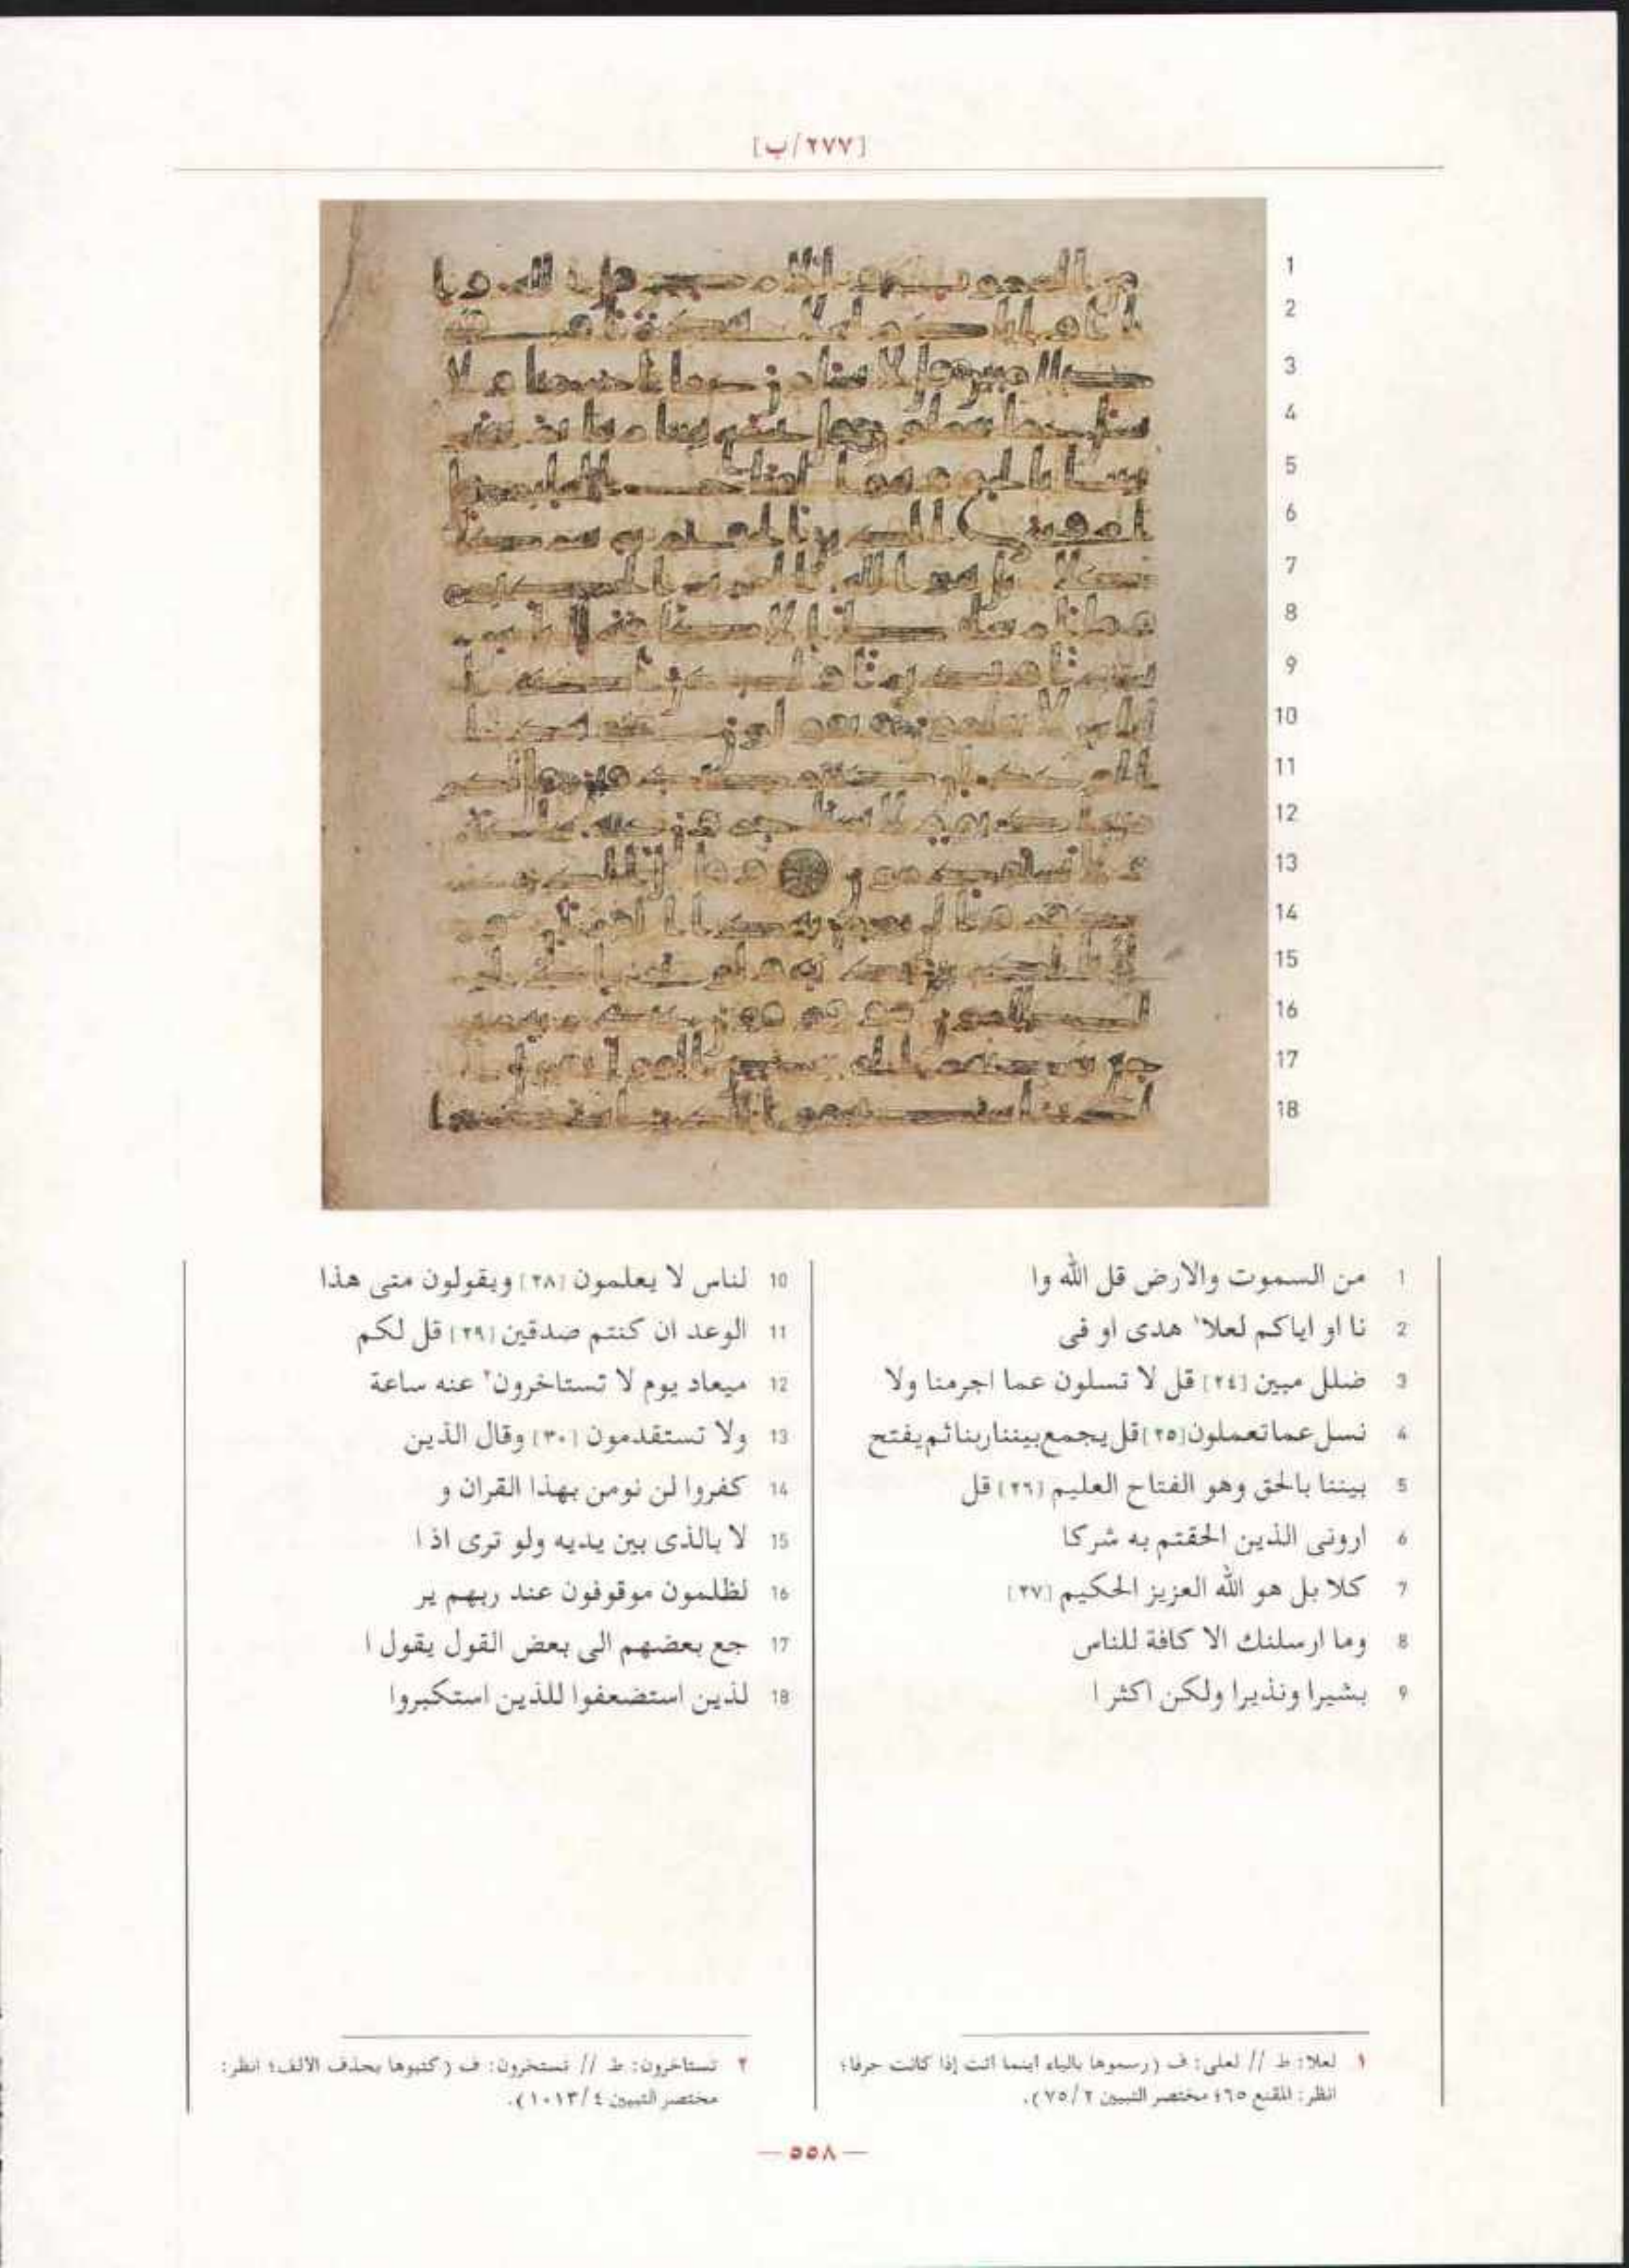 [٢٧٧/ب]
1 من السموت والارض قل الله وا
2 نا او اياكم لعلا١ هدى او فى
3 ضلل مبين [٢٤] قل لا تسلون عما اجرمنا ولا
4 نسل عما تعملون [٢٥] قل يجمع بيننا ربنا ثم يفتح
5 بيننا بالحق وهو الفتاح العليم [٢٦] قل
6 ارونى الذين الحقتم به شركا
7 كلا بل هو الله العزيز الحكيم [٢٧]
8 وما ارسلنك الا كافة للناس
9 بشيرا ونذيرا ولكن اكثر ا
10 لناس لا يعلمون [٢٨] ويقولون متى هذا
11 الوعد ان كنتم صدقين [٢٩] قل لكم
12 ميعاد يوم لا تستاخرون٢ عنه ساعة
13 ولا تستقدمون [٣٠] وقال الذين
14 كفروا لن نومن بهذا القران و
15 لا بالذى بين يديه ولو ترى اذ ا
16 لظلمون موقوفون عند ربهم ير
17 جع بعضهم الى بعض القول يقول ا
18 لذين استضعفوا للذين استكبروا
١ لعلا: ط // لعلى: ف (رسموها بالياء اينما اتت إذا كانت حرفا؛
انظر: المقنع ٦٥؛ مختصر التبيين ٢/ ٧٥).
٢ تستاخرون: ط // تستخرون: ف (كتبوها بحذف الالف؛ انظر:
مختصر التبيين ٤/ ١٠١٣).
— ٥٥٨ —